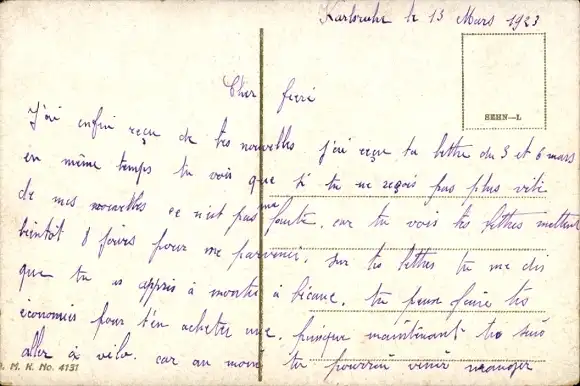 Karlsruhe le 13 Mars 1923
SEHN—L
Cher frère
J'ai enfin reçu de tes nouvelles j'ai reçu ta lettre du 3 et 6 mars
en même temps tu vois que si tu ne reçois pas plus vite
de mes nouvelles ce n'est pas ma faute. car tu vois tes lettres mettent
bientôt 8 jours pour me parvenir. sur tes lettres tu me dis
que tu as appris à monter à bécane. tu peux faire tes
économies pour t'en acheter une. puisque maintenant tu sais
aller à vélo. car au moins tu pourrai venir manger
. M. K. No. 4131